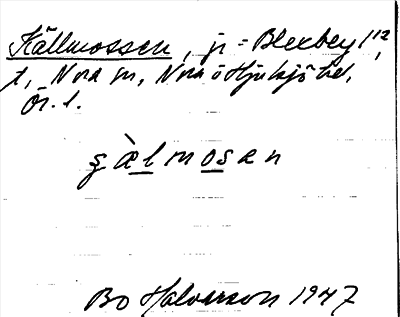 Källmossen, jr = Blexbey 1¹²,
t, Nora sn, Nora o Hjulsjö bd,
Ör. l.
ʂ æ̀ l m o s a n
Bo Halvarson 1947